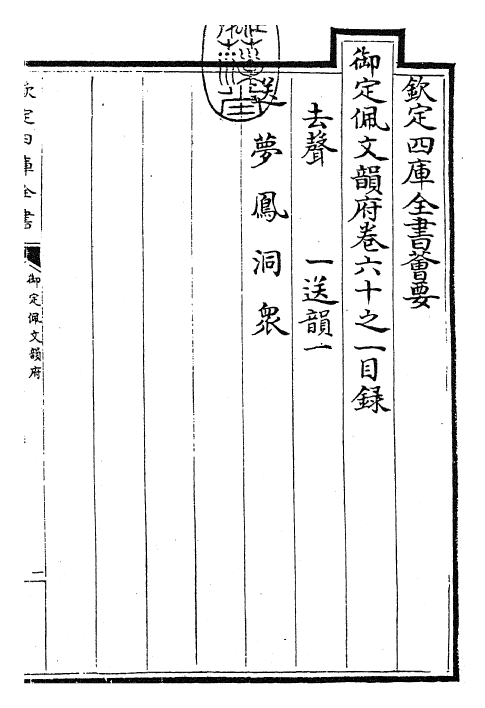 欽定四庫全書薈要
御定佩文韻府卷六十之一目録
去聲 一送韻一
送 夢 鳳 洞 衆
欽定四庫全書
御定佩文韻府
一